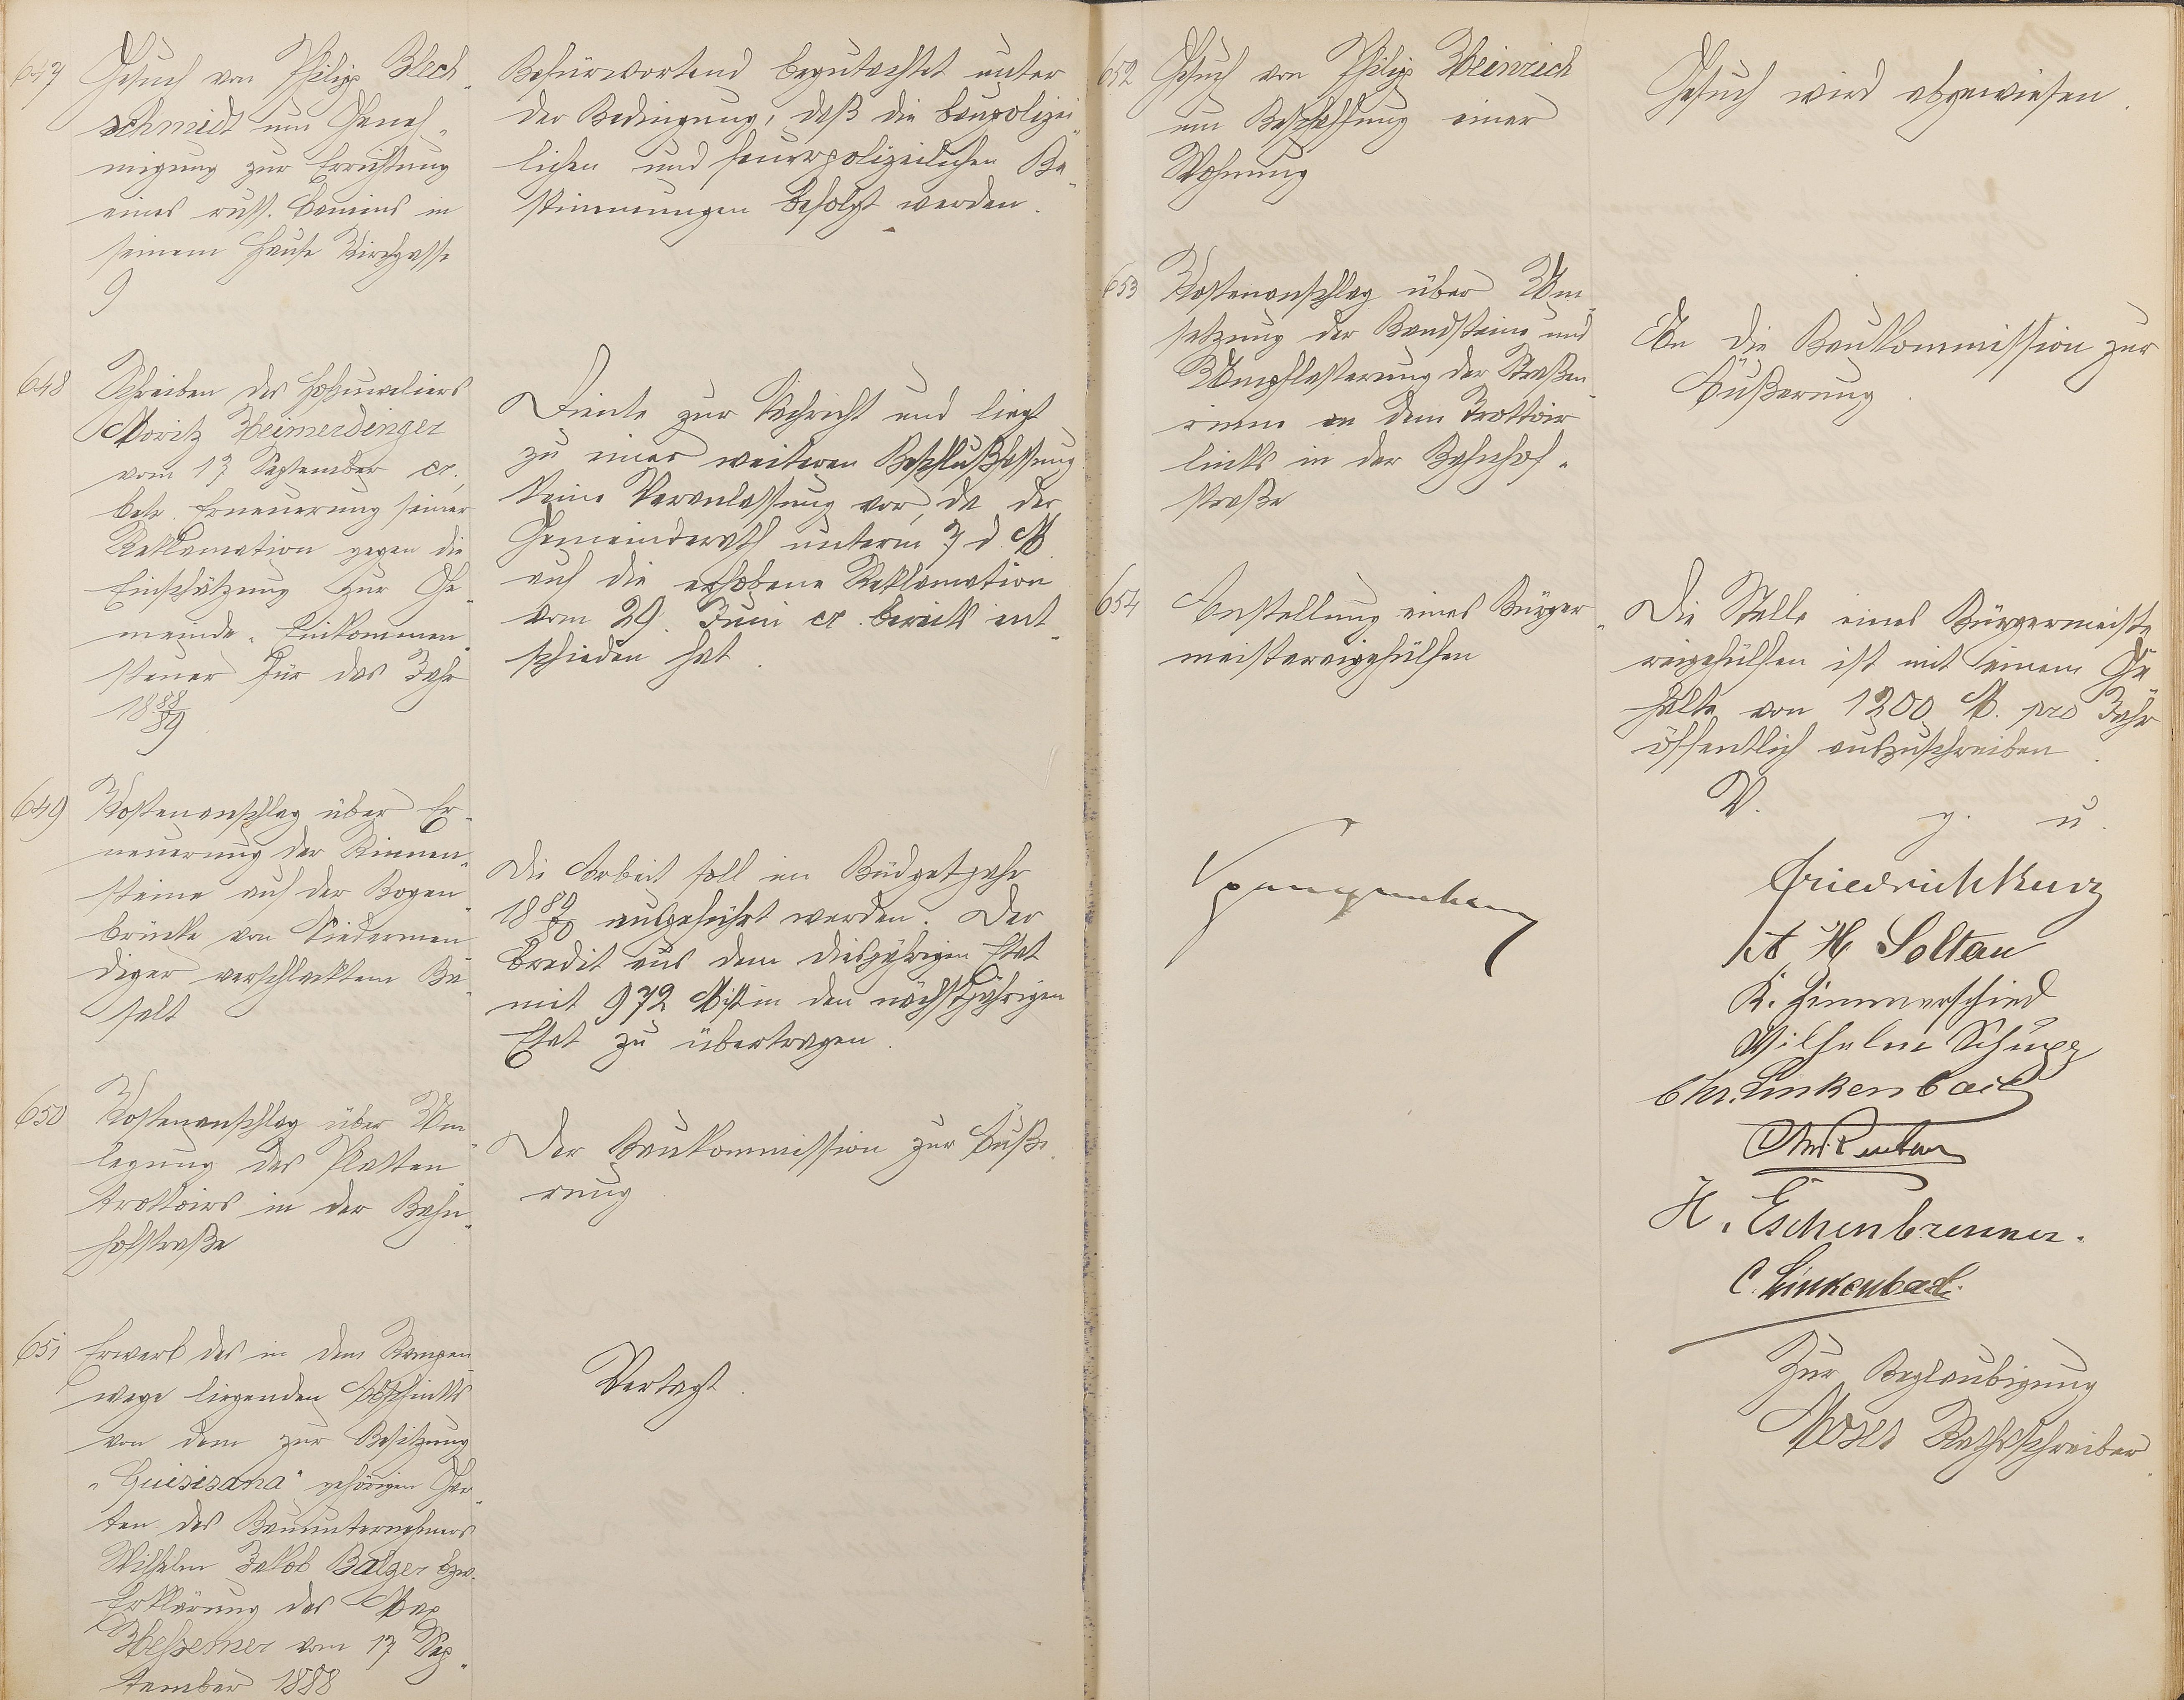 647
Gesuch von Philipp Blech-
schmidt um Geneh-
migung zur Errichtung
eines russ. Kamins in
seinem Hause Kirchgasse
9
Befürwortend begutachtet unter
der Bedingung, daß die baupolizei-
lichen und feuerpolizeilichen Be-
stimmungen befolgt werden.
648
Schreiben des Hofjuweliers
Moritz Heimerdinger
vom 17 September cr.,
betr. Erneuerung seiner
Reklamation gegen die
Einschätzung zur Ge-
meinde-Einkommen-
steuer für das Jahr
1888/89
Diente zur Nachricht und liegt
zu einer weiteren Beschlußfassung
keine Veranlassung vor, da der
Gemeinderath unterm 3 d. M.
auf die erhobene Reklamation
vom 29. Juni cr. bereits ent-
schieden hat.
649
Kostenanschlag über Er-
neuerung der Rinnen-
steine auf der Bogen-
brücke von Niedermen-
diger verschlacktem Ba-
salt
Die Arbeit soll im Büdgetjahr
1889/90 ausgeführt werden. Der
Credit aus dem diesjährigen Etat
mit 972 M ist in den nächstjährigen
Etat zu übertragen.
650
Kostenanschlag über Um-
legung des Platten-
trottoirs in der Bahn-
hofstraße
Der Baukommission zur Äuße-
rung
651
Erwerb des in dem Rampen-
wege liegenden Abschnitts
von dem zur Besitzung
"Quisisana" gehörigen Gar-
ten des Bauunternehmers
Wilhelm Jakob Balzer bzw.
Erklärung des Max
Hessemer vom 17 Sep-
tember 1888
Vertagt.
652
Gesuch von Philipp Heinrich
um Beschaffung einer
Wohnung
Gesuch wird abgewiesen.
653
Kostenanschlag über Um-
setzung der Randsteine und
Umpflasterung der Straßen-
rinne an dem Trottoir
links in der Bahnhof-
straße
An die Baukommission zur
Äußerung.
654
Anstellung eines Bürger-
meistereigehülfen
Die Stelle eines Bürgermeiste-
reigehülfen ist mit einem Ge-
halte von 1200 M. pro Jahr
öffentlich auszuschreiben.
V. g. u.
Friedrich Kurz
A H Soltau
K. Zimmerschied
Wilhelm Schupp
Chr. Linkenbach
H. Eschenbrenner.
C. Linkenbach.
Zur Beglaubigung
Moser Rathsschreiber